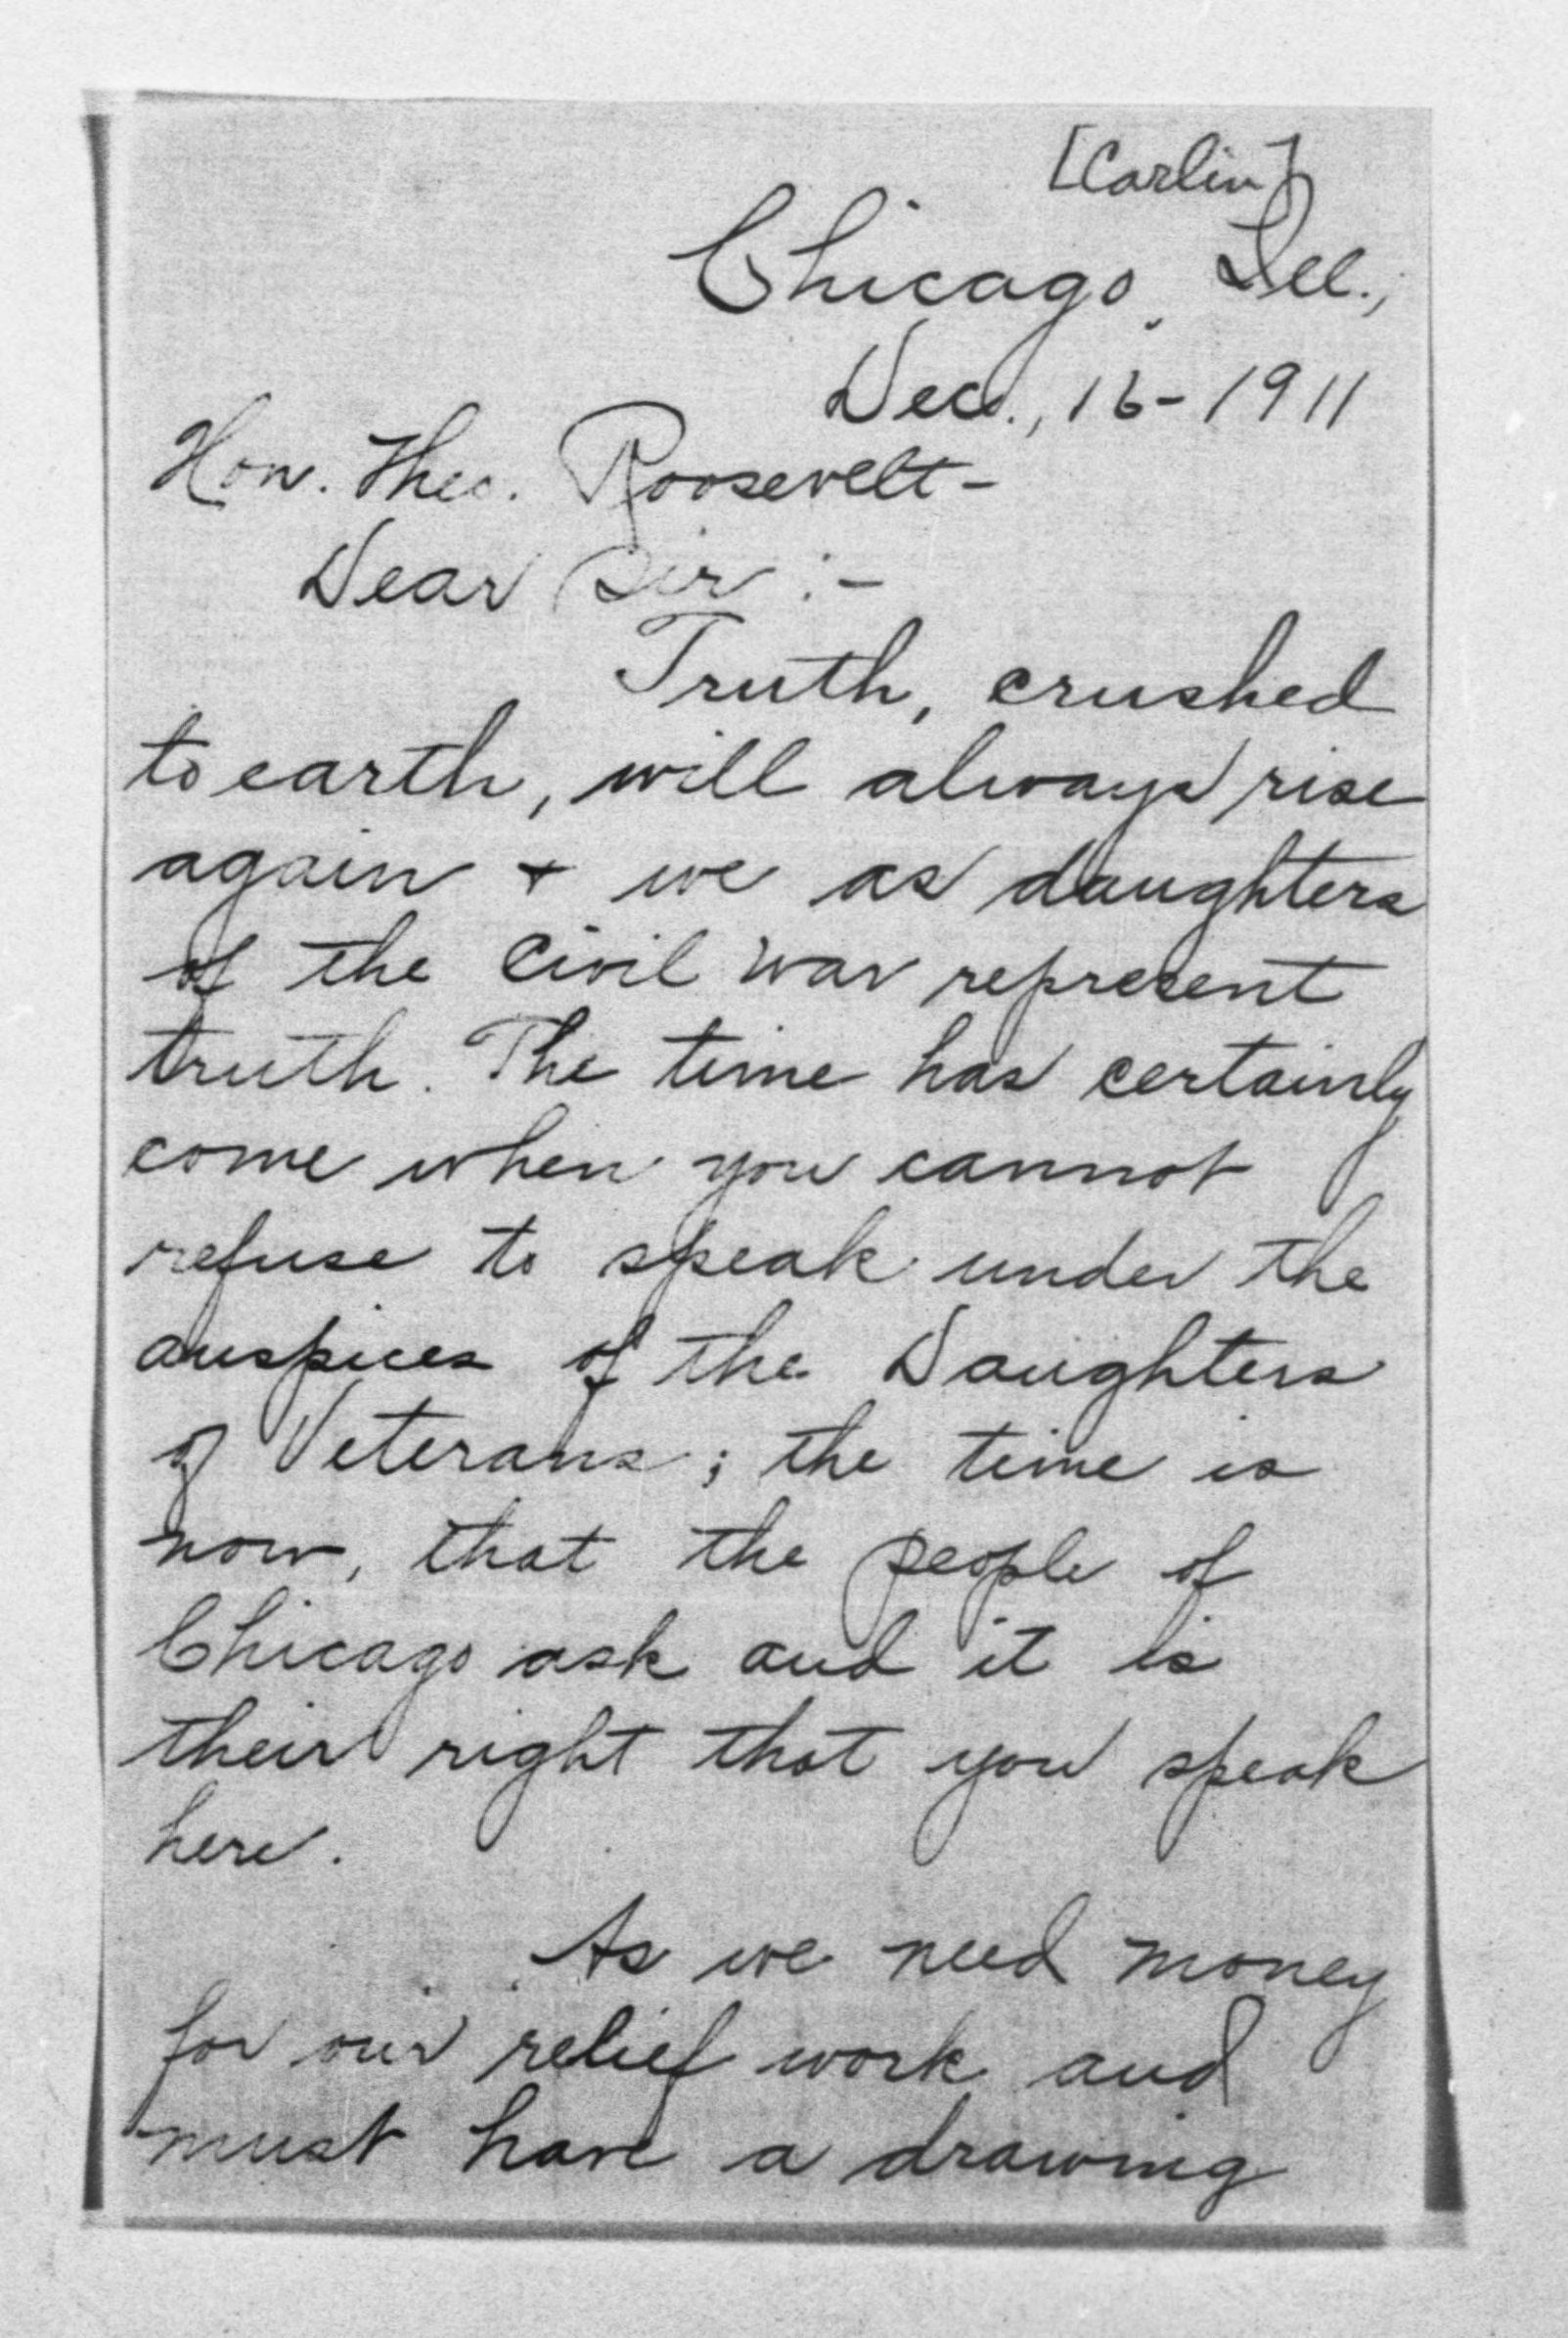 [Carlin]
Chicago, Ill.,
Dec., 16-1911
Hon. Theo. Roosevelt-
Dear Sir:-
Truth, crushed
to earth, will always rise
again + we as daughters
of the Civil War represent
truth. The time has certainly
come when you cannot
refuse to speak under the
auspices of the Daughters
of Veterans; the time is
now, that the people of
Chicago ask and it is
their right that you speak
here.
As we need money
for our relief work and
must have a drawing